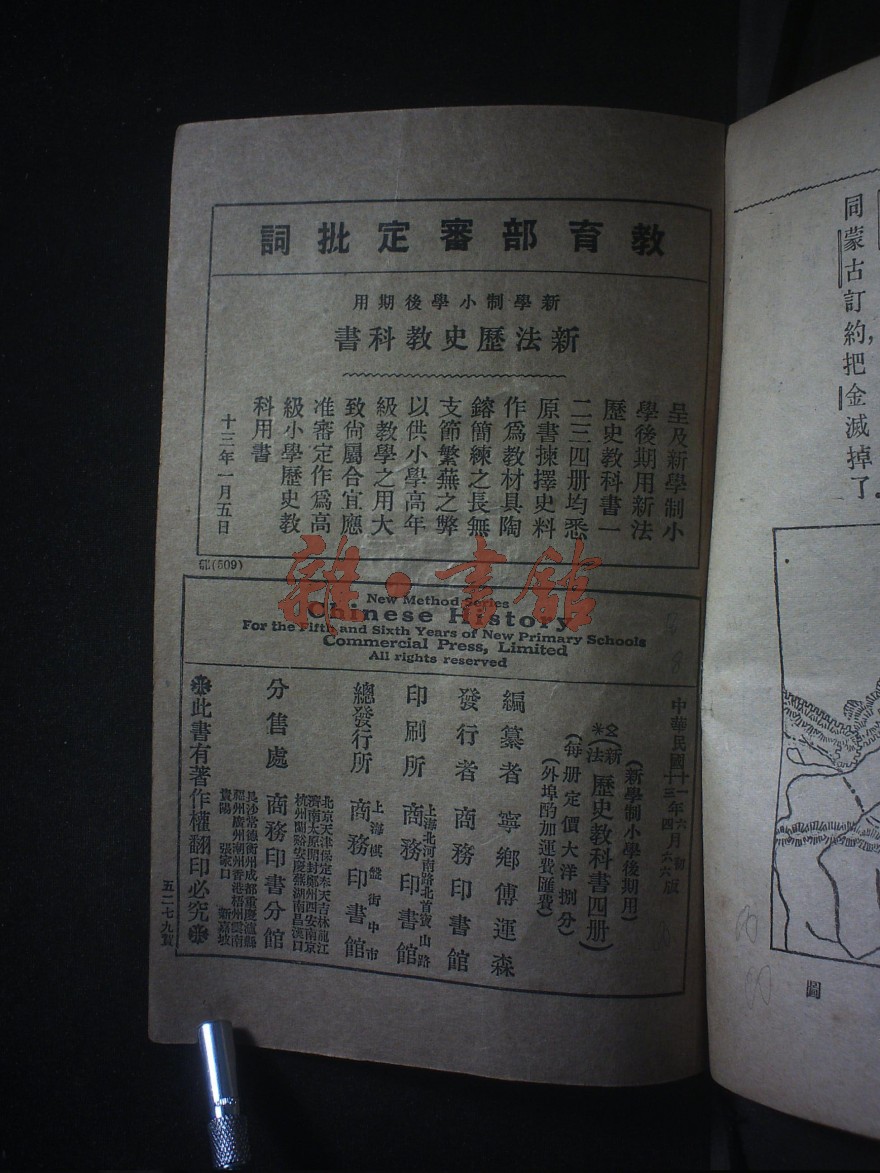 教育部審定批詞
新學制小學後期用
新法歷史教科書
呈及新學制小
學後期用新法
歷史教科書一
二三四册均悉
原書揀擇史料
作爲教材具陶
鎔簡練之長無
支節繁蕪之弊
以供小學高年
級教學之用大
致尚屬合宜應
准審定作爲高
級小學歷史教
科用書
十三年一月五日
(609)
雜·書館
New Method Series
Chinese History
For the Fifth and Sixth Years of New Primary Schools
Commercial Press, Limited
All rights reserved
中華民國十一年六月初版
十三年四月六六版
(新學制小學後期用)
(新法)歷史教科書四册
(每册定價大洋捌分)
(外埠酌加運費匯費)
編纂者 寧鄉傅運森
發行者 商務印書館
印刷所 上海北河南路北首寶山路 商務印書館
總發行所 上海棋盤街中市 商務印書館
分售處 商務印書分館
北京天津保定奉天吉林龍江
濟南太原開封鄭州西安南京
杭州蘭谿安慶蕪湖南昌漢口
長沙常德衡州成都重慶瀘縣
福州廣州潮州香港梧州雲南
貴陽 張家口 新嘉坡
此書有著作權翻印必究
五二七九賀
同蒙古訂約，把金滅掉了。
圖